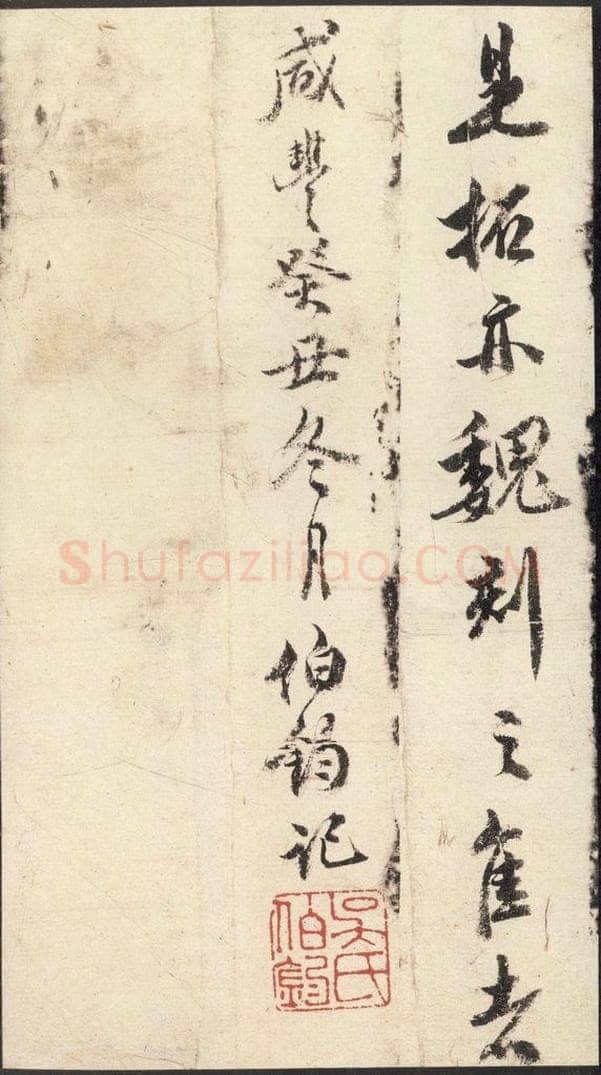 是拓亦魏刻之隹者
咸豐癸丑冬月伯鈞記
吳氏
伯鈞
Shufaziliao.COM